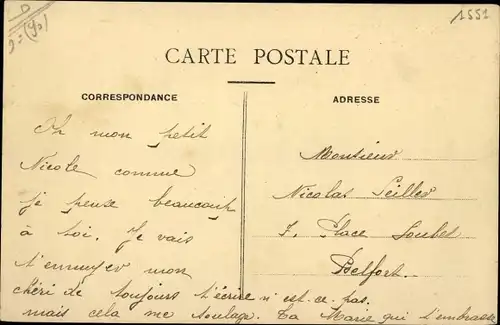 1551
CARTE POSTALE
CORRESPONDANCE
ADRESSE
Oh mon petit
Nicole comme
je pense beaucoup
à toi. Je vais
t'ennuyer mon
chéri de toujours t'écrire n'est-ce-pas.
mais cela me soulage. Ta Marie qui t'embrasse
Monsieur
Nicolas Seiller
7, Place Loubet
Belfort.